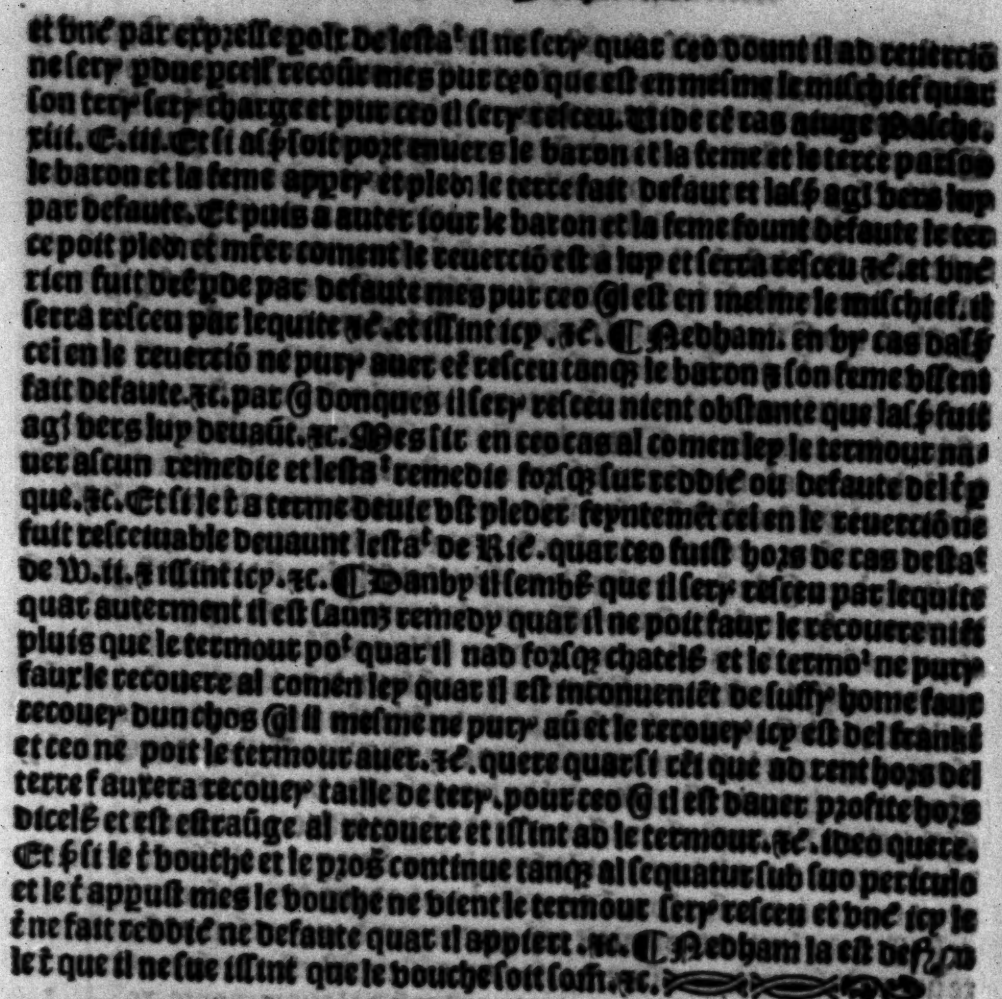 et vnc̄ par expresse polr de lesta' il ne sery quar ceo dount il ad reuerciō
ne sery pdue pceif recoūr mes pur ceo que est en mesme le mischief quar
son tery sery charge et pur ceo il sery resceu. Vide cē cas auuge Pasche.
xiii. E. iii. Et si assō soit port enuers le baron et la feme et le terce
le baron et la feme appery et pled; le terce fait defaut et lassō agi vers luy
par defaute. Et puis a auter iour le baron et la feme fount defaute le
ce poit pled et mr̄er coment le reuerciō est a luy et serra resceu ⁊c̄. et vnc̄
rien fuit par defaute mes pur ceo q̄l est en mesme le mischief. il
serra resceu par lequite ⁊c̄. et issint icy .⁊c̄. ¶ Nedham. en vr̄ cas dassō
cei en le reuerciō ne pury auer eē resceu tanqȝ le baron ⁊ son feme vssent
fait defaute. ⁊c. par q̄ donques il sery resceu nient obstante que lassō fuit
agi vers luy deuāt. ⁊c. Mes sir en ceo cas al comen ley le termour na⸗
uer ascun remedie et lesta' remedie forsqȝ sur reddic̄ ou defaute del
que. ⁊c. Et si le t̄ a terme deuie vst pleder feyntemēt cei en le reuerciō ne
fuit resceiuable deuaunt lesta' de Ric̄. quar ceo fuist hors de cas desta'
de W. ii. ⁊ issint icy. ⁊c. ¶ Danby il semblē que il sery resceu par lequite
quar auterment il est saunz remedy quar il ne poit faux le recouere
pluis que le termour po' quar il nad forsqȝ chatelē et le termo' ne pury
faux le recouere al comen ley quar il est inconueniēt de suffr̄ home faux
recouer dun chos q̄l il mesme ne pury aū et le recouer icy est del frankē
et ceo ne poit le termour auer. ⁊c̄. quere quar si cēi que ad rent hors del
terre fauxera recouer taille de tery. pour ceo q̄ il est dauer profite hors
dicelē et est estraūge al recouere et issint ad le termour. ⁊c. ideo quere.
Et p̄ si le t̄ vouche et le pros̄ continue tanqȝ al sequatur sub suo periculo
et le t̄ appust mes le vouche ne vient le termour sery resceu et vnc̄ icy le
t̄ ne fait reddic̄ ne defaute quar il appiert. ⁊c. ¶ Nedham la est def en
le t̄ que il ne sue issint que le vouche soit som̄. ⁊c.